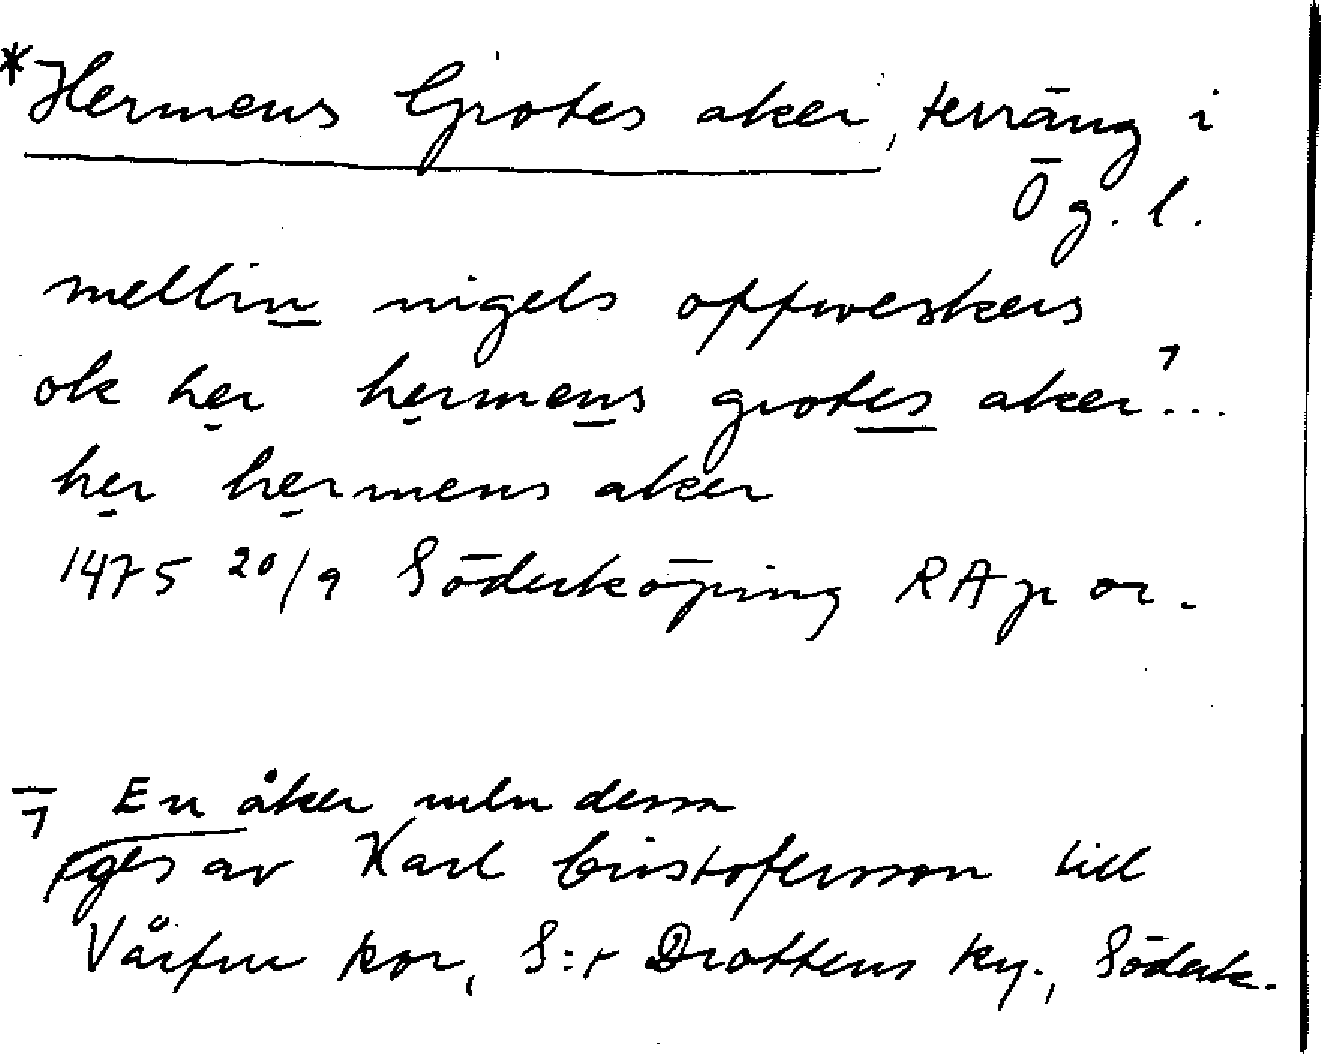 *Hermens Grotes aker, terräng i
Ög. l.
mellin nigels offweskers
ok her hermens grotes aker 1...
her hermens aker
1475 20/9 Söderköping RAp or.
1 En åker meln dessa
ges av Karl Cristoffersson till
Vårfru kor, S:t Drottens ky., Söderk.